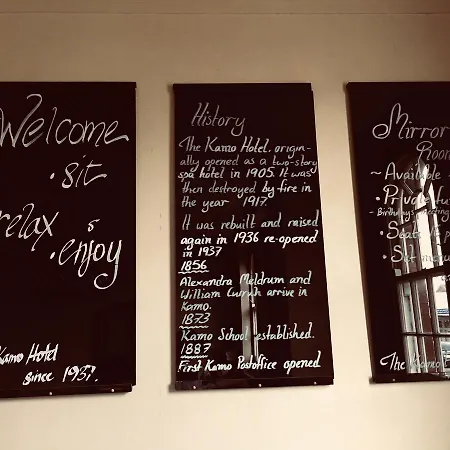 Welcome
• sit
relax
• enjoy
Kamo Hotel
since 1937.
History
The Kamo Hotel. origin-
ally opened as a two-story
spa hotel in 1905. It was
then destroyed by fire in
the year 1917.
It was rebuilt and raised
again in 1936 re-opened
in 1937
1856
Alexandra Meldrum and
William Curruh arrive in
Kamo.
1873
Kamo School established.
1887
First Kamo Postoffice opened
Mirror
Room
~ Available
• Private
- Birthdays
• Seats
• Set menu
The Kamo